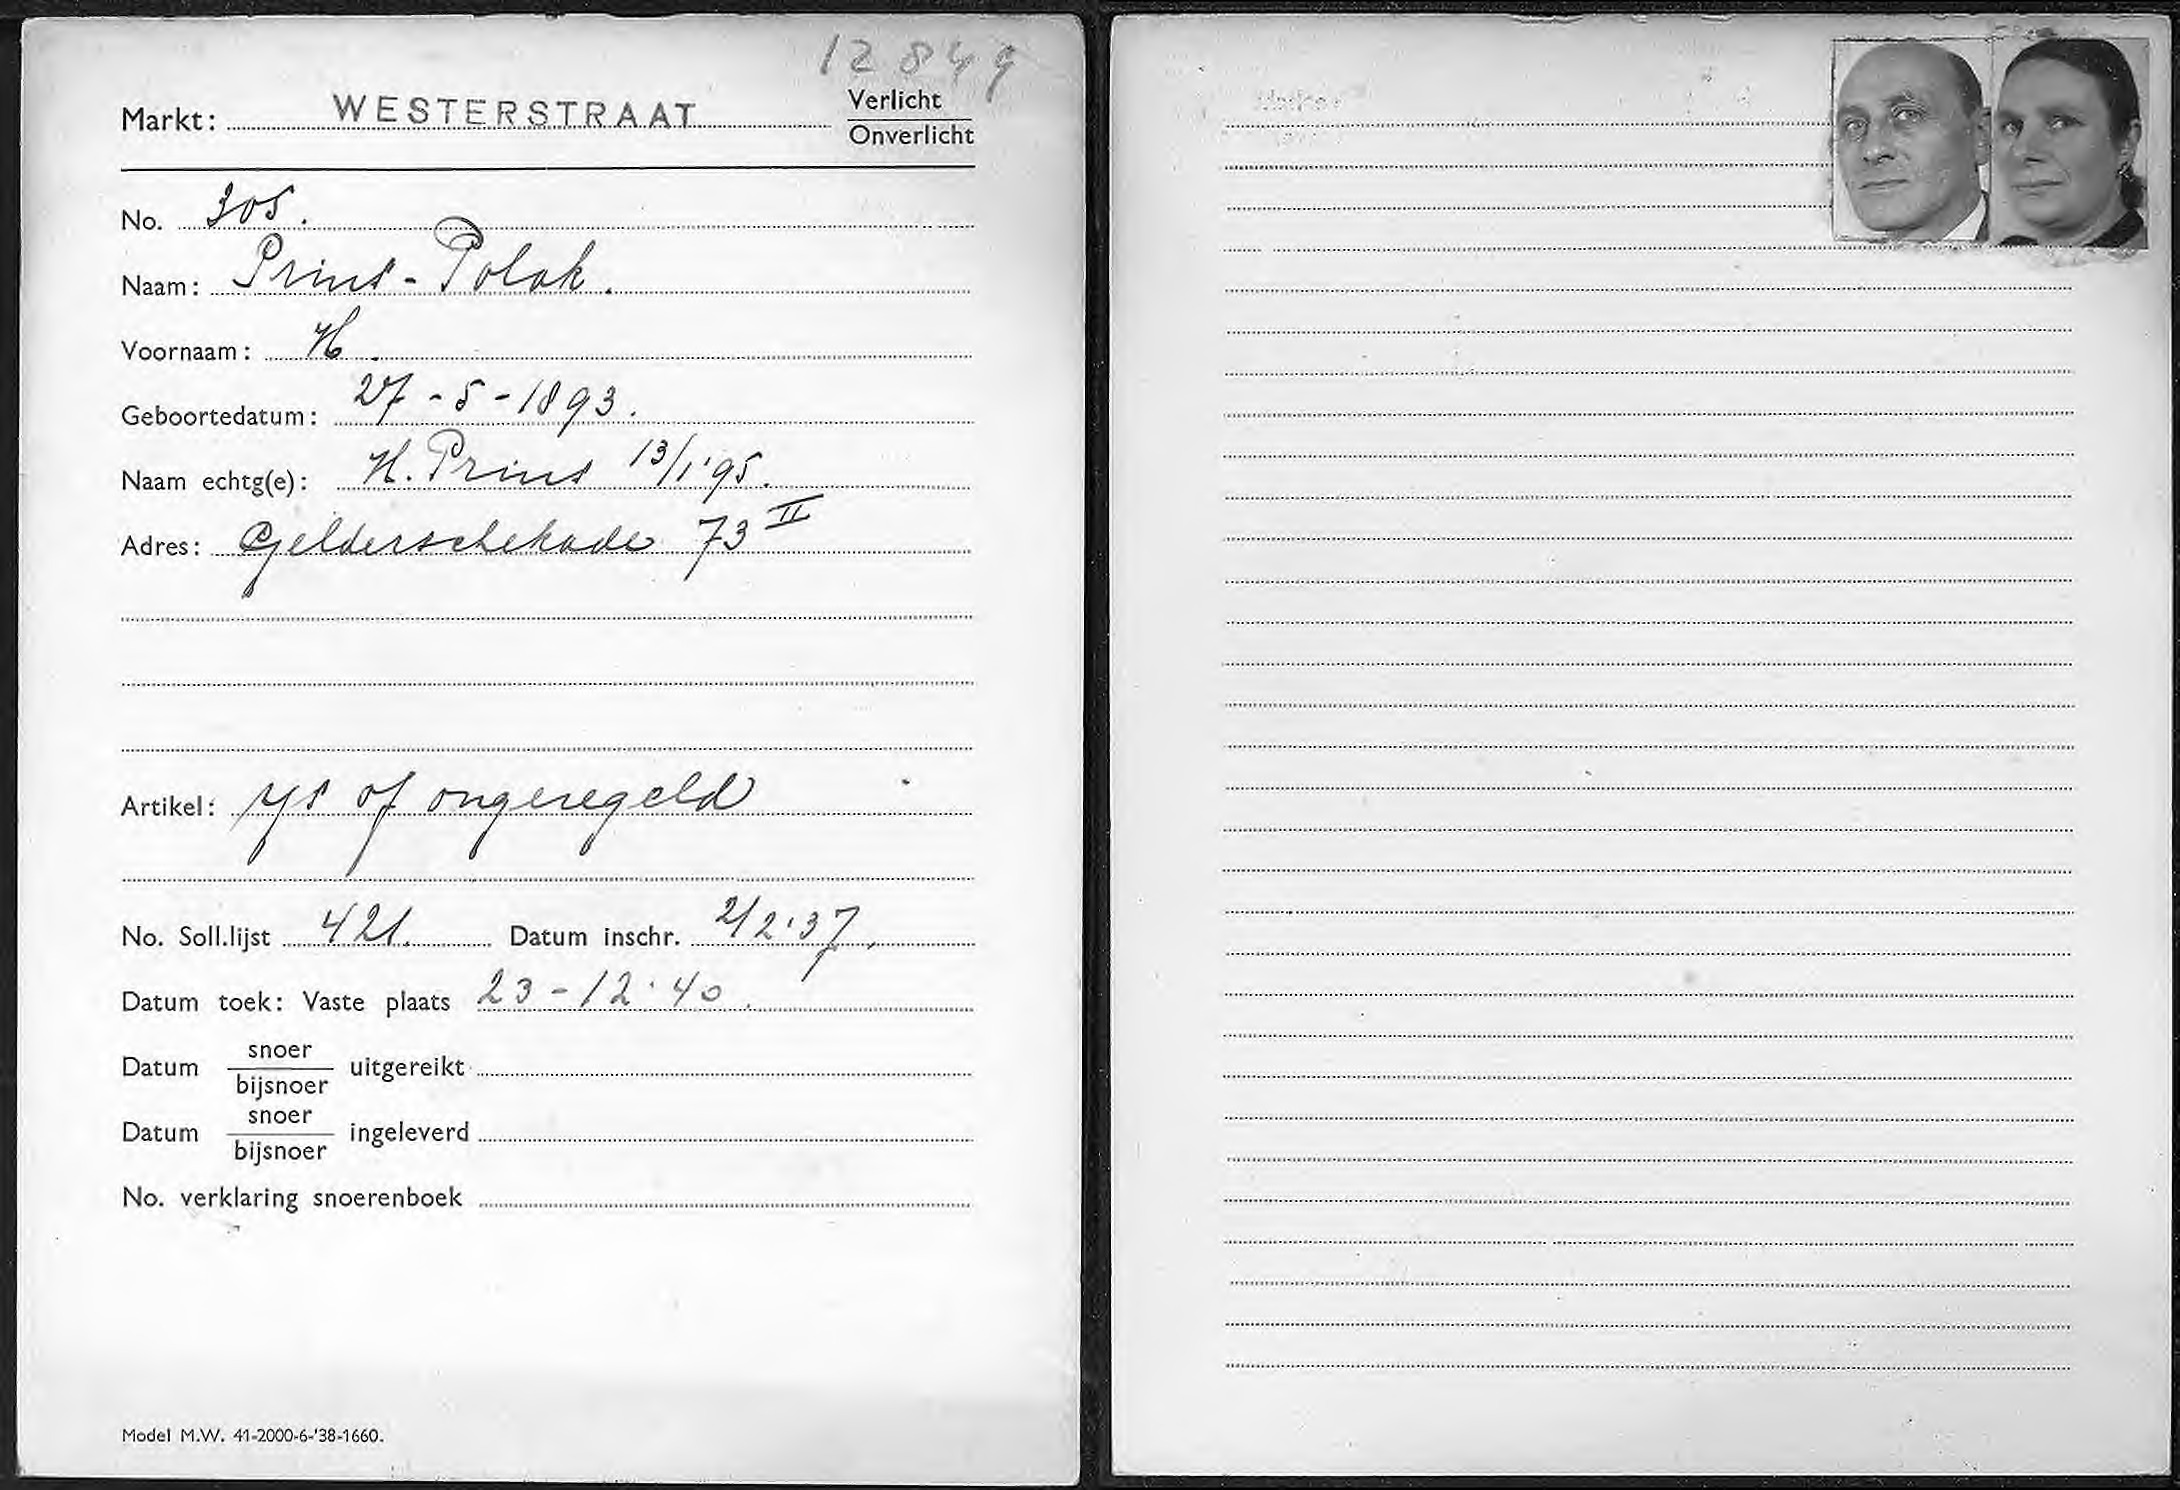 12849
Markt: WESTERSTRAAT Verlicht
Onverlicht
No. 305.
Naam: Prins-Polak.
Voornaam: H.
Geboortedatum: 27-5-1893.
Naam echtg(e): H. Prins 13/1'95.
Adres: Gelderschekade 73 II
Artikel: ys of ongeregeld
No. Soll.lijst 421. Datum inschr. 2/2'37.
Datum toek: Vaste plaats 23-12'40.
Datum snoer
bijsnoer uitgereikt
Datum snoer
bijsnoer ingeleverd
No. verklaring snoerenboek
Model M.W. 41-2000-6-'38-1660.